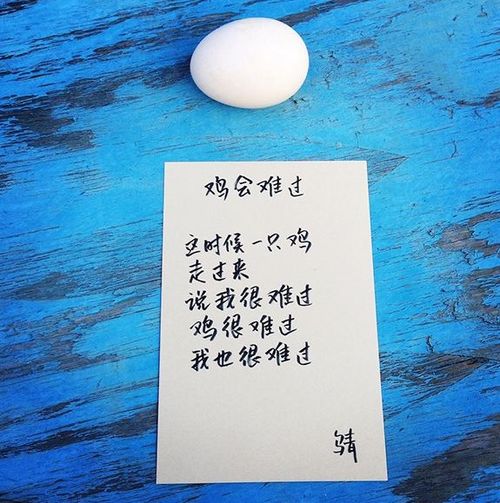 鸡会难过
这时候一只鸡
走过来
说我很难过
鸡很难过
我也很难过